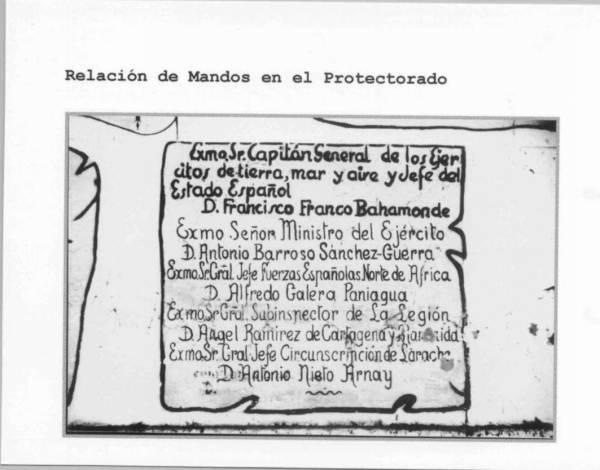 Relación de Mandos en el Protectorado
Exmo. Sr. Capitán General de los Ejer
citos de tierra, mar y aire y Jefe del
Estado Español
D. Francisco Franco Bahamonde
Exmo Señor Ministro del Ejército
D. Antonio Barroso Sánchez-Guerra
Exmo. Sr. Gral. Jefe Fuerzas Españolas Norte de Africa
D. Alfredo Galera Paniagua
Exmo Sr Gral. Subinspector de La Legión
D. Angel Ramirez de Cartagena y
Exmo. Sr. Gral. Jefe Circunscripción de Larache
D. Antonio Nieto Arnay